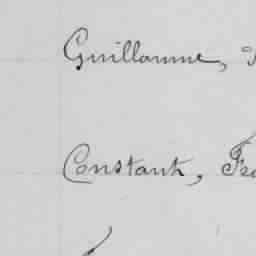 Guillaume,
Constant, Fr